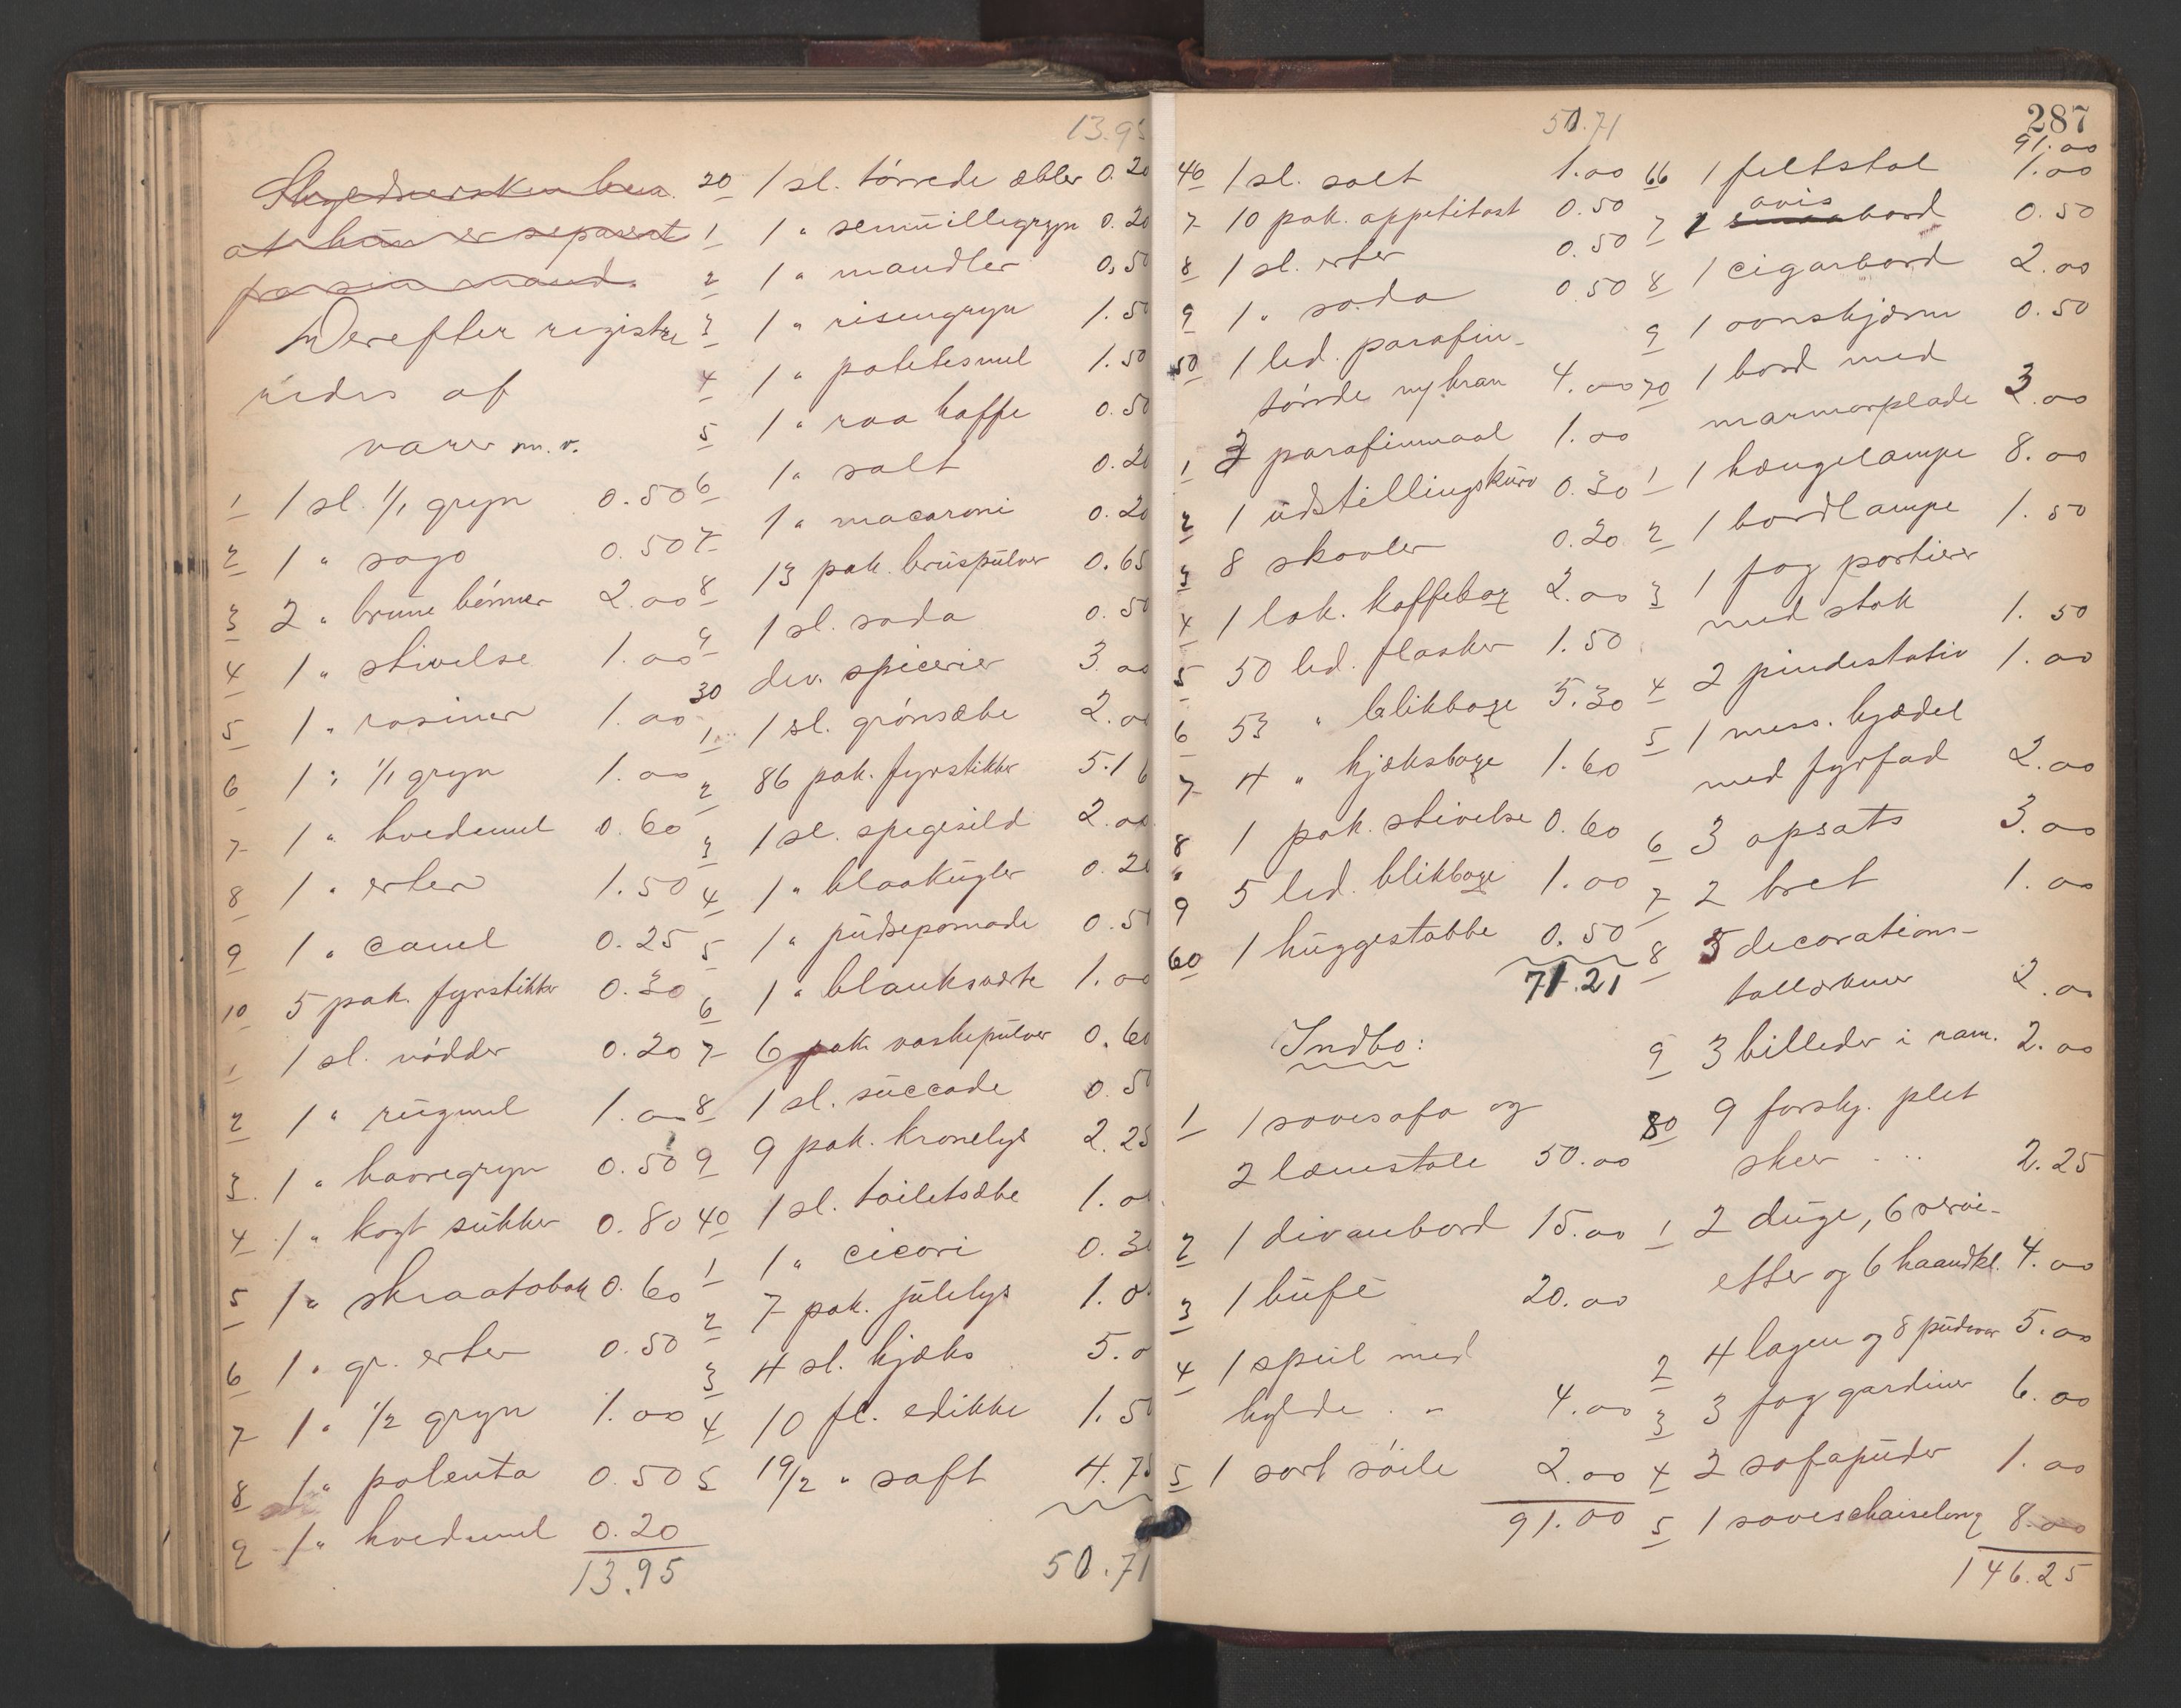 at hun er separert
fra sin mand.
Derefter registre-
redes af
varer m.v.
1 1 sl. 1/1 gryn 0.50
2 1 " sago 0.50
3 2 " brune bönner 2.00
4 1 " stivelse 1.00
5 1 " rosiner 1.00
6 1 " 1/1 gryn 1.00
7 1 " hvedemel 0.60
8 1 " erter 1.50
9 1 " canel 0.25
10 5 pak. fyrstikker 0.30
1 1 sl. nödder 0.20
2 1 " rugmel 1.00
3 1 " havregryn 0.50
4 1 " kogt sukker 0.80
5 1 " skraatobak 0.60
6 1 " gr. erter 0.50
7 1 " 1/2 gryn 1.00
8 1 " polenta 0.50
9 1 " hvedemel 0.20
13.95
13.95
20 1 sl. törrede æbler 0.20
1 1 " semuillegryn 0.20
2 1 " mandler 0.50
3 1 " risengryn 1.50
4 1 " potetesmel 1.50
5 1 " raa kaffe 0.50
6 1 " salt 0.20
7 1 " macaroni 0.20
8 13 pak. bruspulver 0.65
9 1 sl. soda 0.50
30 div. spicerier 3.00
1 1 sl. grönsæbe 2.00
2 86 pak. fyrstikker 5.16
3 1 sl. spegesild 2.00
4 1 " blaakugler 0.20
5 1 " pudsepomade 0.50
6 1 " blanksværte 1.00
7 6 pak. vaskepulver 0.60
8 1 sl. succade 0.50
9 9 pak. kronelys 2.25
40 1 sl. toiletsæbe 1.00
1 1 " cicori 0.30
2 7 pak. julelys 1.00
3 4 sl. kjæks 5.00
4 10 fl. edikke 1.50
5 19/2 " saft 4.75
50.71
50.71
46 1 sl. salt 1.00
7 10 pak. appetitost 0.50
8 1 sl. erter 0.50
9 1 " soda 0.50
50 1 led. parafin-
tönde m/ kran 4.00
1 3 parafinmaal 1.00
2 1 udstillingskurv 0.30
3 8 skovler 0.20
4 1 lak. kaffebox 2.00
5 50 led. flasker 1.50
6 53 " blikboxe 5.30
7 4 " kjæksboxe 1.60
8 1 pak. stivelse 0.60
9 5 led. blikboxe 1.00
60 1 huggestabbe 0.50
71.21
Indbo:
1 1 sovesofa og
2 lænestole 50.00
2 1 divanbord 15.00
3 1 bufé 20.00
4 1 speil med
hylde . " 4.00
5 1 sort söile 2.00
91.00
287
91.00
66 1 feltstol 1.00
avis
7 1 bord 0.50
8 1 cigarbord 2.00
9 1 ovnskjærm 0.50
70 1 bord med
marmorplade 3.00
1 1 hængelampe 8.00
2 1 bordlampe 1.50
3 1 fag portierer
med stok 1.50
4 2 pindestativ 1.00
5 1 mess. kjædel
med fyrfad 2.00
6 3 opsats 3.00
7 2 bret 1.00
8 5 decorations-
tallerkner 2.00
9 3 billeder i ram. 2.00
80 9 forskj. plet
skeer ... 2.25
1 2 duge, 6 servi-
etter og 6 haandkl. 4.00
2 4 lagen og 8 pudevar 5.00
3 3 fag gardiner 6.00
4 2 sofapuder 1.00
5 1 sovechaiselong 8.00
146.25